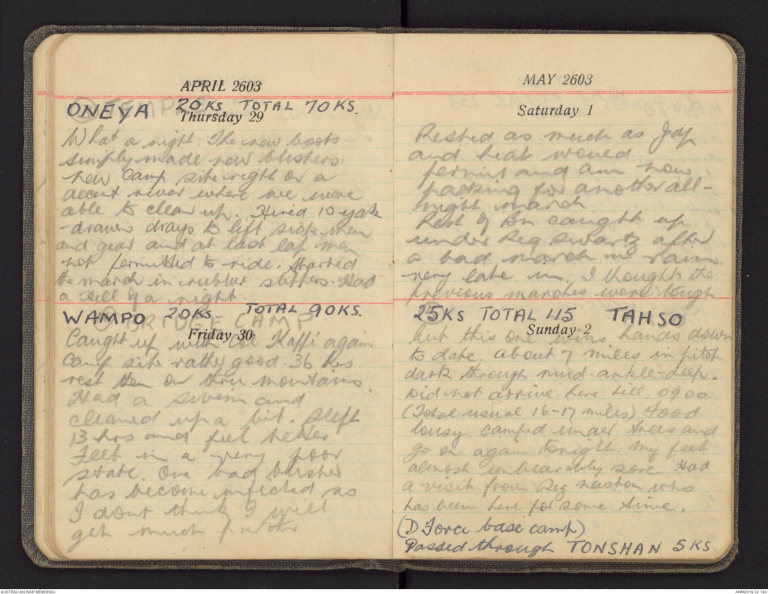 APRIL 2603
ONEYA 20KS TOTAL 70KS.
Thursday 29
What a night. The new boots
simply made new blisters.
New camp site right on a
decent river where we were
able to clean up. Hired 10 yak
-drawn drays to lift sick men
and gear and at last lap men
not permitted to ride. Started
the march in rubber slippers. Had
a Hell of a night.
WAMPO 20KS TOTAL 90KS.
BRIDGE CAMP
Friday 30
Caught up with Col Kaffi again.
Camp site rather good. 36 hrs
rest then on thru mountains.
Had a swim and
cleaned up a bit. Slept
13 hrs and feel better
Feet in a very poor
state. One bad blister
has become infected so
I dont think I will
get much further
MAY 2603
Saturday 1
Rested as much as Jap
and heat would
permit and am now
packing for another all-
night march
Rest of Bn caught up
under Reg Swartz after
a bad march in rain
very late in. I thought the
previous marches were tough
25KS TOTAL 115 TAHSO
Sunday 2
but this one wins hands down
to date. About 7 miles in pitch
dark through mud ankle-deep.
Did not arrive here till 0900
(Total usual 16-17 miles) Food
lousy camped under trees and
go on again tonight. My feet
almost unbearably sore. Had
a visit from Reg Newton who
has been here for some time.
(D Force base camp)
Passed through TONSHAN 5KS
AUSTRALIAN WAR MEMORIAL